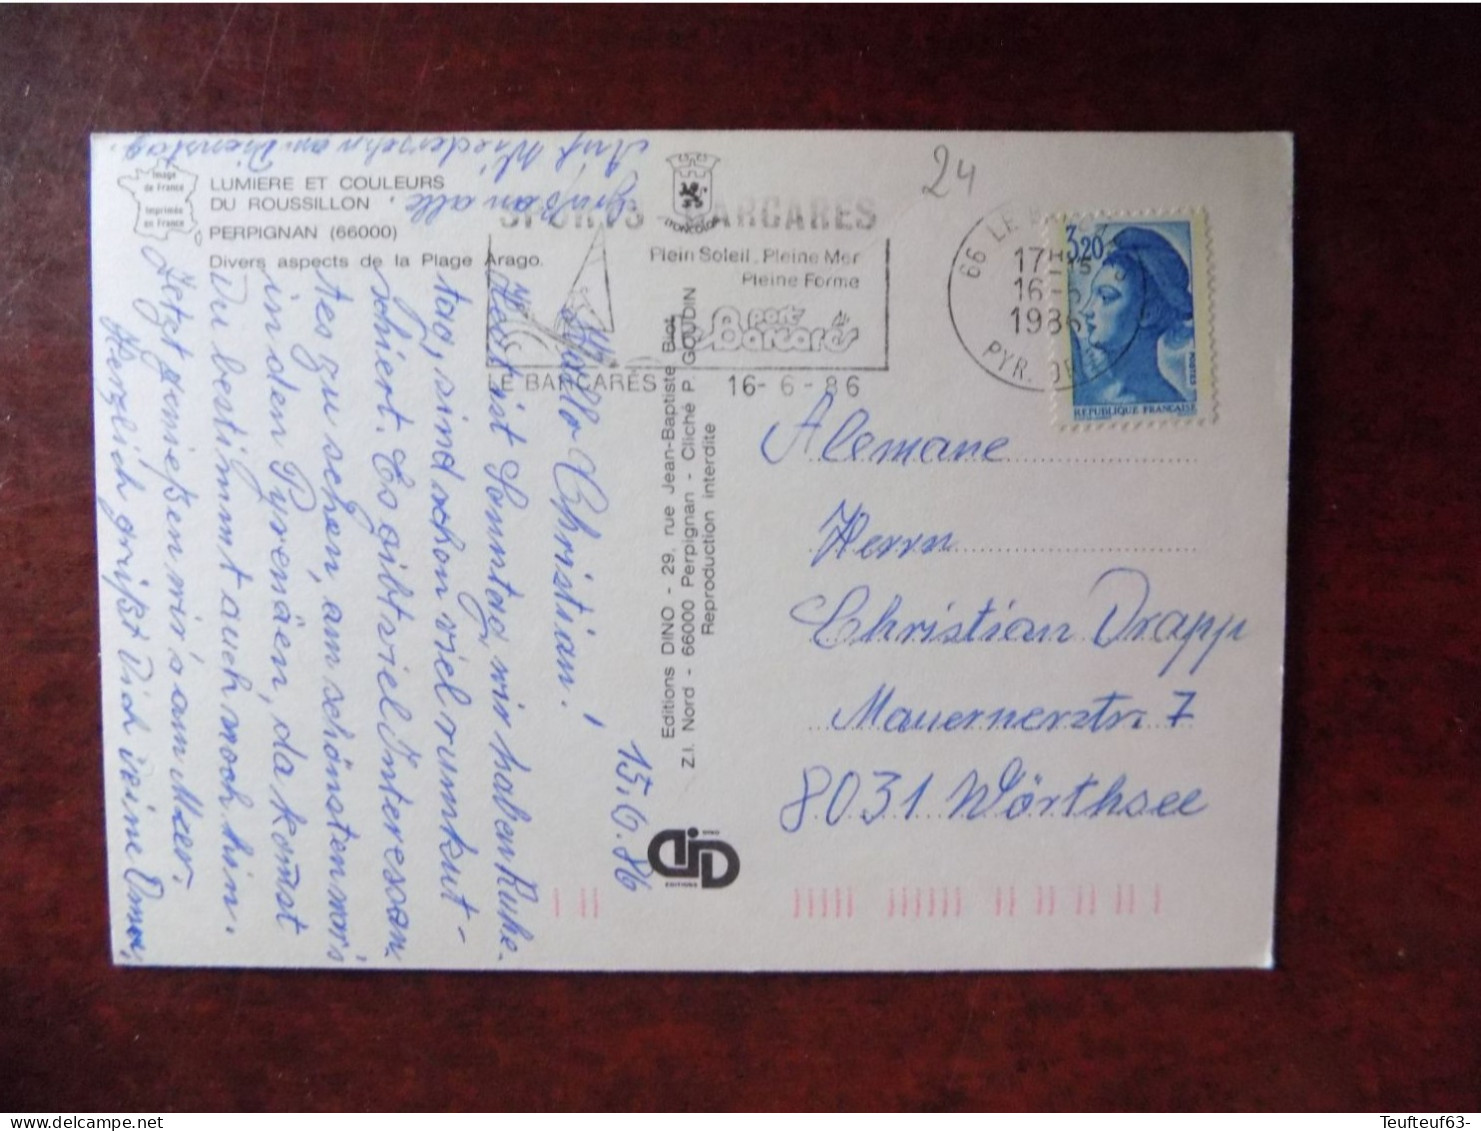 24
Image
de France
Imprimée
en France
LUMIERE ET COULEURS
DU ROUSSILLON
PERPIGNAN (66000)
Divers aspects de la Plage Arago.
SPORTS - BARCARES
Plein Soleil, Pleine Mer
Pleine Forme
port
Barcarès
LE BARCARES
16-6-86
66 LE
17H
16-6
1986
PYR. OR
3,20
POSTES
REPUBLIQUE FRANÇAISE
15.6.86
Hallo Christian!
Heost ist Sonntag, wir haben Ruhe-
tag, sind schon viel rumkut-
schiert. Es gibt viel Interessan
tes zu sehen, am schönsten war's
in den Pyrenäen, da komst
Du bestimmt auch noch hin.
Jetzt genießen wir's am Meer.
Herzlich grüßt Dich Deine Oma,
Gruß an alle
Auf Wiedersehn am Dienstag.
Editions DINO - 29, rue Jean-Baptiste Biot
Z.I. Nord - 66000 Perpignan - Cliché P. GOUDIN
Reproduction interdite
EDITIONS
Alemane
Herrn
Christian Drapp
Mauernerstr. 7
8031 Wörthsee
Teufteuf63-